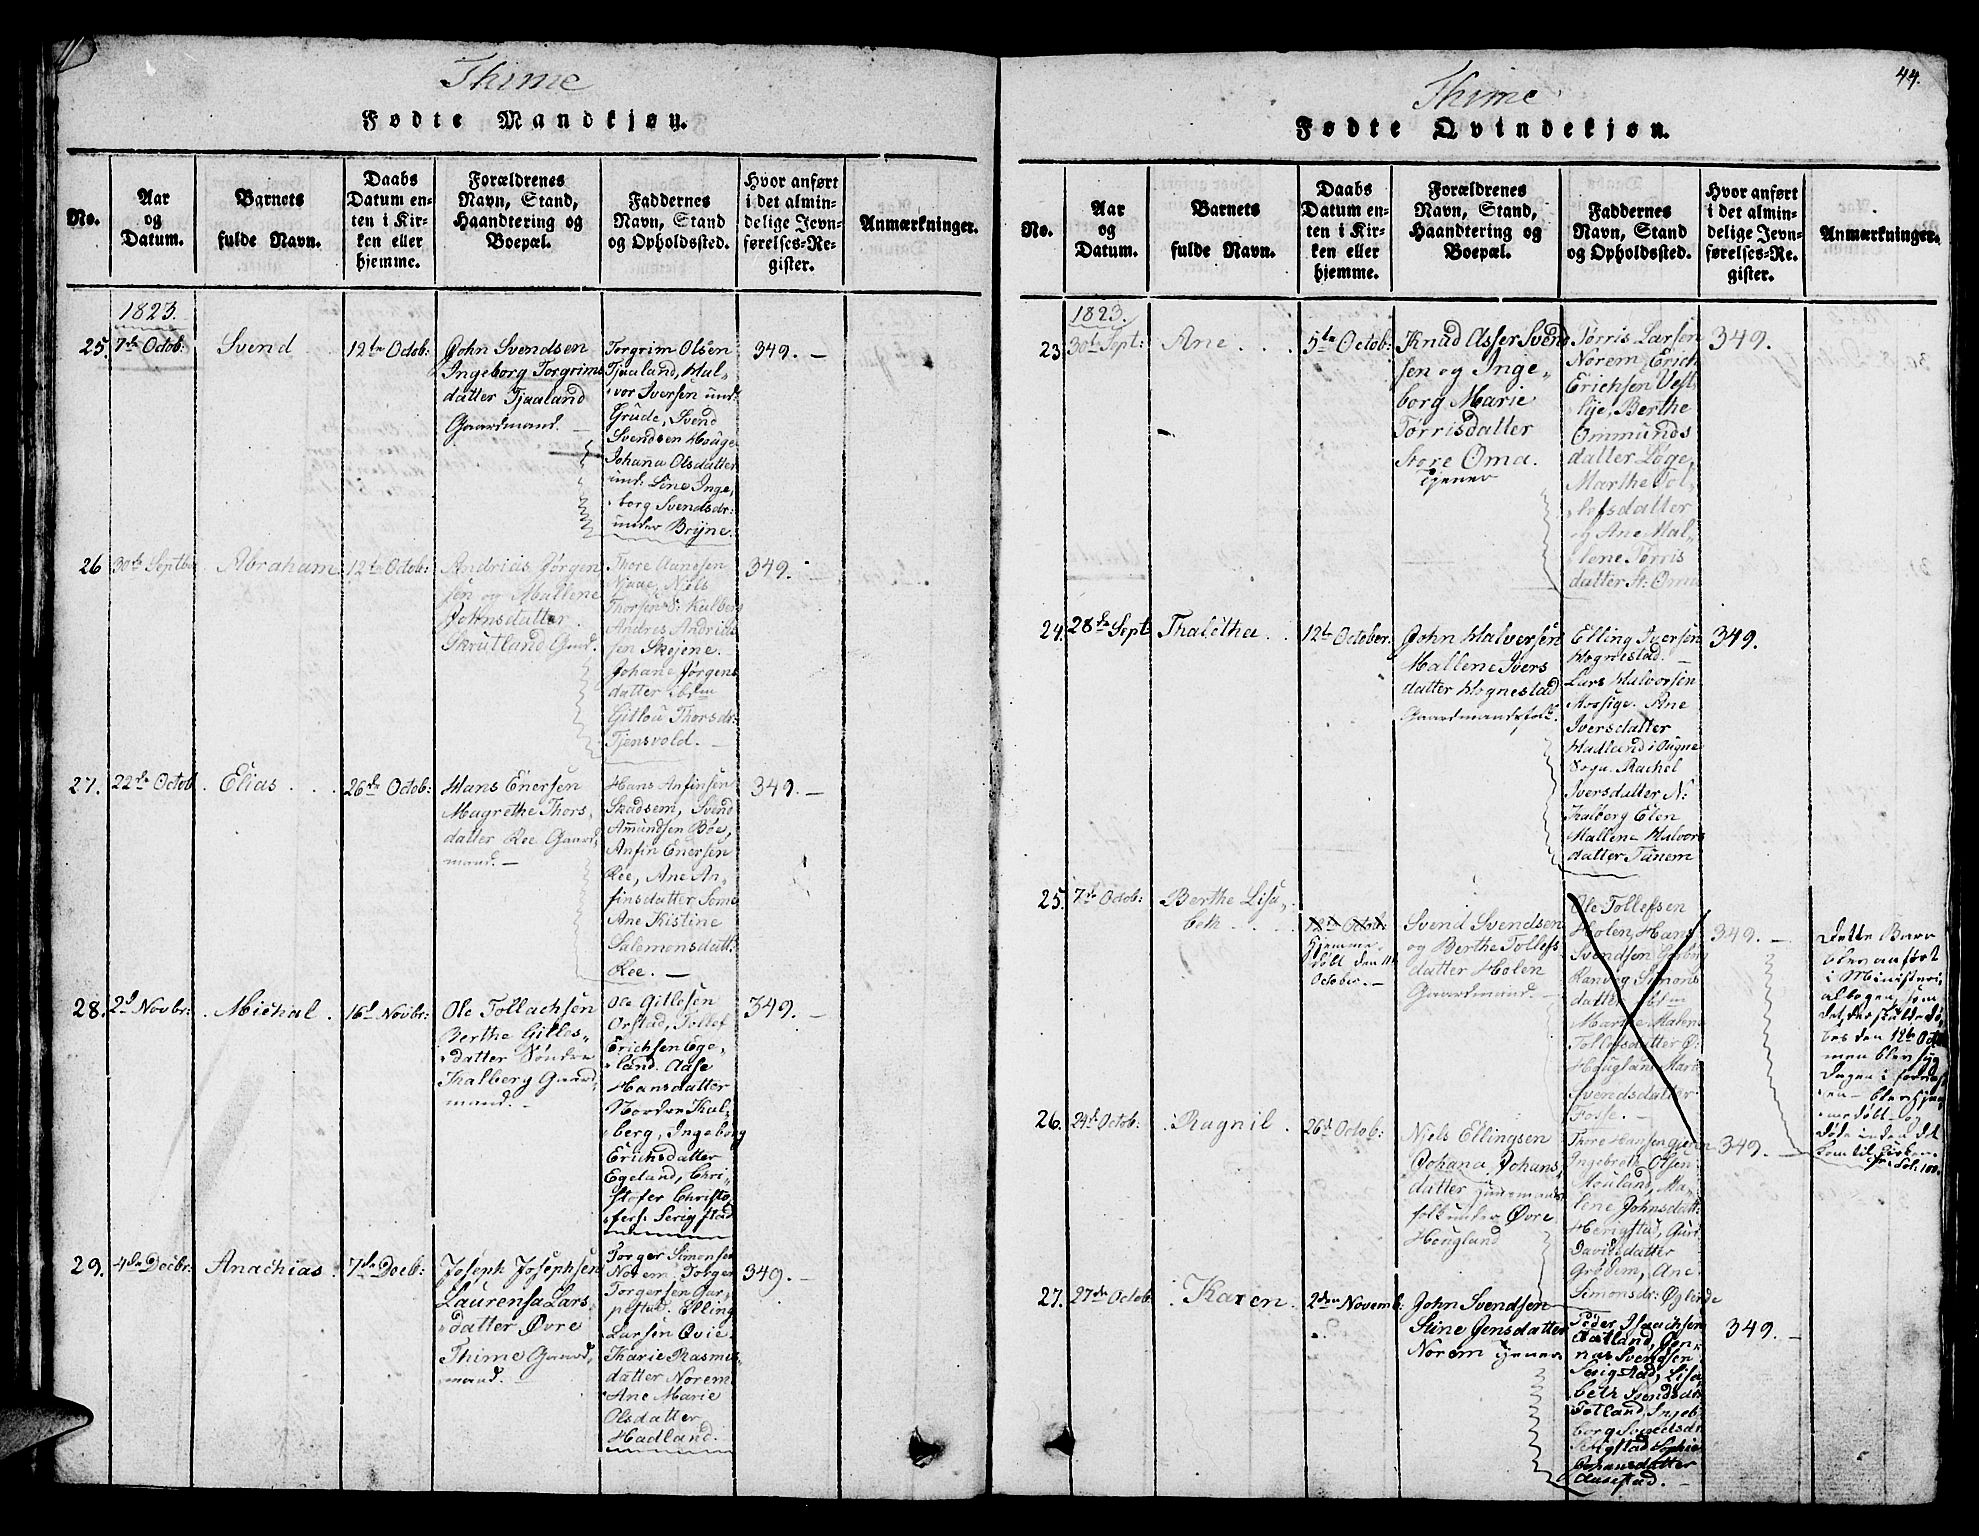 Thime
Fødte Mandkjøn.
No.
Aar
og
Datum.
Barnets
fulde Navn.
Daabs
Datum en-
ten i Kir-
ken eller
hjemme.
Forældrenes
Navn, Stand,
Haandtering og
Boepæl.
Faddernes
Navn, Stand
og Opholdssted.
Hvor anført
i det almin-
delige Jevn-
førelses-Re-
gister.
Anmærkninger.
1823.
25.
7de Octob:
Svend
12te Octob:
John Svendsen
Ingeborg Torgrims
datter Tjaaland
Gaardmand.
Torgrim Olsen
Tjaaland, Hal-
vor Iversen und:
Grude, Svend
Svendsen Houge
Johana Olsdatter
und: Line Inge-
borg Svendsdr:
under Bryne.
349.
26
30te Septbr
Abraham
12te Octob:
Andrias Jørgen
sen og Mallene
Johnsdatter
Skrutland Gmd.
Thore Aanesen
Njaae, Niels
Thorsen S: Kalberg
Andres Andrias
sen Skejene.
Johane Jørgens
datter ibdm
Gitlou Thorsdr:
Tjensvold.
349.
27.
22de Octob
Elias
26de Octob:
Hans Enersen
Magrethe Thors-
datter Ree Gaard-
mand.
Hans Anfinsen
Skadsem, Svend
Amundsen Bøe,
Anfin Enersen
Ree, Ane An-
finsdatter Some
Ane Kistine
Salemonsdatt:
Ree.
349.
28.
2d Novbr:
Michal
16d Novbr:
Ole Tollachsen
Berthe Gitles-
datter Søndre
Kalberg Gaard-
mand.
Ole Gitlesen
Orstad, Tollef
Erichsen Ege-
land. Aase
Hansdatter
Nordre Kal-
berg, Ingeborg
Erichsdatter
Egeland, Chri-
stofer Christo-
fers: Serigstad
349.
29.
4de Decbr:
Anachias
7de Decb:
Joseph Josephsen
Laurensa Lars-
datter Øvre
Thime Gaard-
mand.
Torger Simonsen
Norem, Torger
Torgersen Gar-
pestad. Elling
Larsen Qvie.
Karie Rasmus-
datter Norem
Ane Marie
Olsdatter
Hadland.
349.
44.
Thime
Fødte Qvindekjøn.
No.
Aar
og
Datum.
Barnets
fulde Navn.
Daabs
Datum en-
ten i Kir-
ken eller
hjemme.
Forældrenes
Navn, Stand,
Haandtering og
Boepæl.
Faddernes
Navn, Stand
og Opholdssted.
Hvor anført
i det almin-
delige Jevn-
førelses-Re-
gister.
Anmærkninger.
1823.
23.
30te Sept:
Ane
5te Octob:
Knud Asser Svend
sen og Inge-
borg Marie
Torrisdatter
Store Oma.
tjener
Torris Larsen
Norem, Erich
Erichsen Vest
lye, Berthe
Ommunds
datter Løge,
Marthe Tol-
lefsdatter
og Ane Mal-
lene Torris
datter St: Oma
349.
24.
28de Sept
Thalêtha
12te October:
John Halversen
Mallene Ivers
datter Hognestad
Gaardmandsfolk.
Elling Iversen
Hognestad.
Lars Halvorsen
Mossige. Ane
Iversdatter
Hadland i Ougne
Sogn. Rachel
Iversdatter N:
Kalberg Elen
Mallene Halvors
datter Tunem
349.
25.
7de Octob:
Berthe Lisa-
beth
12te Octob:
Hjemme-
døbt den 11
October.
Svend Svendsen
og Berthe Tollefs
datter Holen
Gaardmand.
Ole Tollefsen
Holen, Hans
Svendsen
Ranveg Simons
datter ibdm
Marthe Malene
Tollefsdatter Ø:
Hougland, Mari
Svendsdatter
Fosse.
349.
Dette Barn
blev anført
i Ministeri-
albogen, som
det, der skulde dø-
bes den 12te Octob
men blev syg
Dagen i forvej-
en - blev hjem-
medøbt og
døde inden det
kom til Kirken
26.
24d Octob:
Ragnil
26d Octob:
Niels Ellingsen
Johana Johans-
datter Huusmands
folk under Øvre
Hougland
Thore Hansen Gjeren
Ingebreth Olsen
Mouland, Ma-
lene Johnsdatt:
Herigstad, Guri
Davidsdatter
Grødem, Ane
Simonsdr: Øglende
349.
27.
27de Octob
Karen
2den Novemb:
John Svendsen
Stine Jensdatter
Norem tjener
Peder Isaachsen
Aatland, Jon-
nas Svendsen
Serigstad, Lisa-
beth Svendsdtr
Totland, Ingeb-
borg Svendsdtr
Serigstad Sophie
Johansdatter
349.